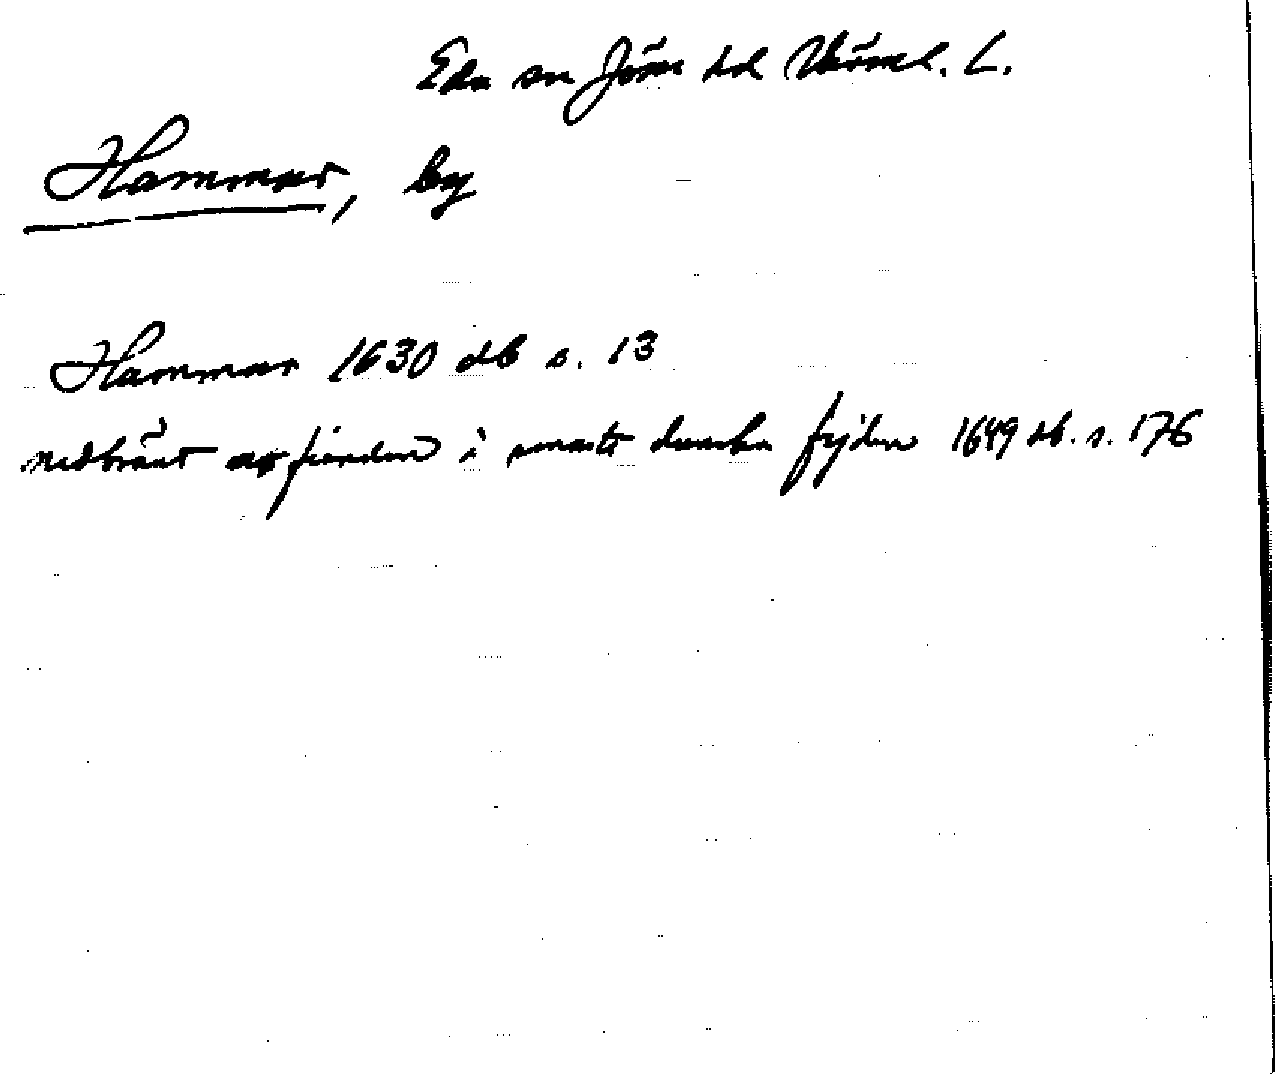 Eda sn Jösse hd Värml. L.
Hammar, by
Hammar 1630 db s. 13
nedbränt av fienden i senaste danska fejden 1649 db. s. 176